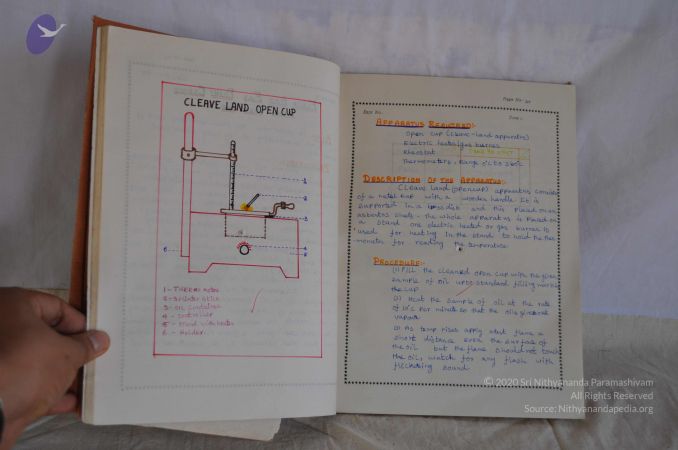 CLEAVE LAND OPEN CUP
1
2
3
4
5
6
1 - THERMOmeter
3 - OIL container
4 - controller
5 - stand with heater
6 - Holder
Page No:
Expt No:
Date:
APPARATUS REQUIRED:-
Open cup (Cleave-land apparatus)
Electric heater/gas burner
Rheostat
Thermometers: Range
DESCRIPTION OF THE APPARATUS:-
CLEAVE Land (open cup) apparatus consists
of a metal cup with a wooden handle. It is
supported in a disc and this placed on an
asbestos sheet - the whole apparatus is placed on
a stand one electric heated or gas burner is
used for heating in the stand to hold the ther
mometer for reading the temperature
PROCEDURE:-
(1) FILL the cleaned open cup with the given
Sample of oil upto standard filling mark in
the cup
(2) Heat the sample of oil at the rate
of 10°C per minute so that the oil gives out
vapour
(3) As temp rises apply flame a
short distance over the surface of
the oil but the flame should not touch
the oil, watch for any flash with
flickering sound.
© 2020 Sri Nithyananda Paramashivam
All Rights Reserved
Source: Nithyanandapedia.org